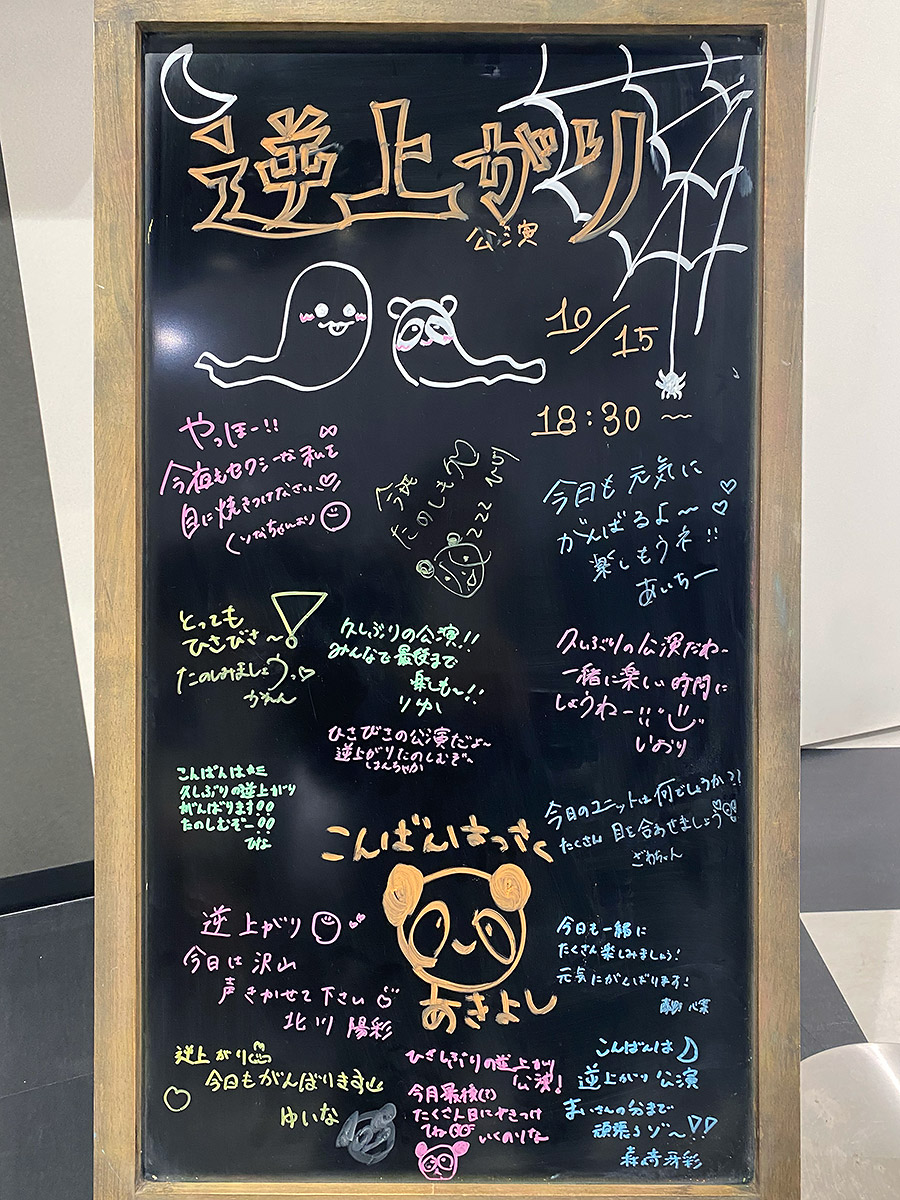 逆上がり
公演
10/15
18:30〜
やっほー!!
今夜もセクシーな私を
目に焼きつけなさい
くりなちゃんより
今夜
たのしもう
222
今日も元気に
がんばるよ〜
楽しもうネ!!
あいちー
とっても
ひさびさ〜
たのしみましょう
かれん
久しぶりの公演!!
みんなで最後まで
楽しも〜!!
りゆい
久しぶりの公演だねー
一緒に楽しい時間に
しようねー!!
いおり
ひさびさの公演だよ〜
逆上がりたのしむぞ〜
ほんちゃか
こんばんは
久しぶりの逆上がり
がんばります!!
たのしむぞー!!
ぴよ
今日のユニットは何でしょうか?!
たくさん目を合わせましょう
ざわちゃん
こんばんはっきく
あきよし
逆上がり
今日は沢山
声きかせて下さい
北川 陽彩
今日も一緒に
たくさん楽しみましょう!
元気にがんばります!
心菜
逆上がり
今日もがんばります
ゆいな
ひさしぶりの逆上がり
公演!
今月最後(?)
たくさん目にやきつけ
てね
いくのりな
こんばんは
逆上がり公演
まいさんの分まで
頑張るゾ〜!!
森﨑冴彩